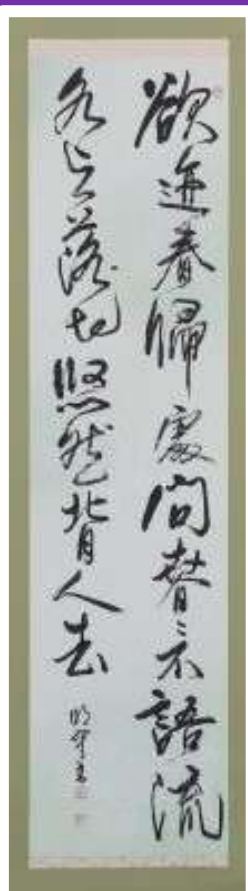 欲迹春歸處問春々不語流
水与落花悠然背人去